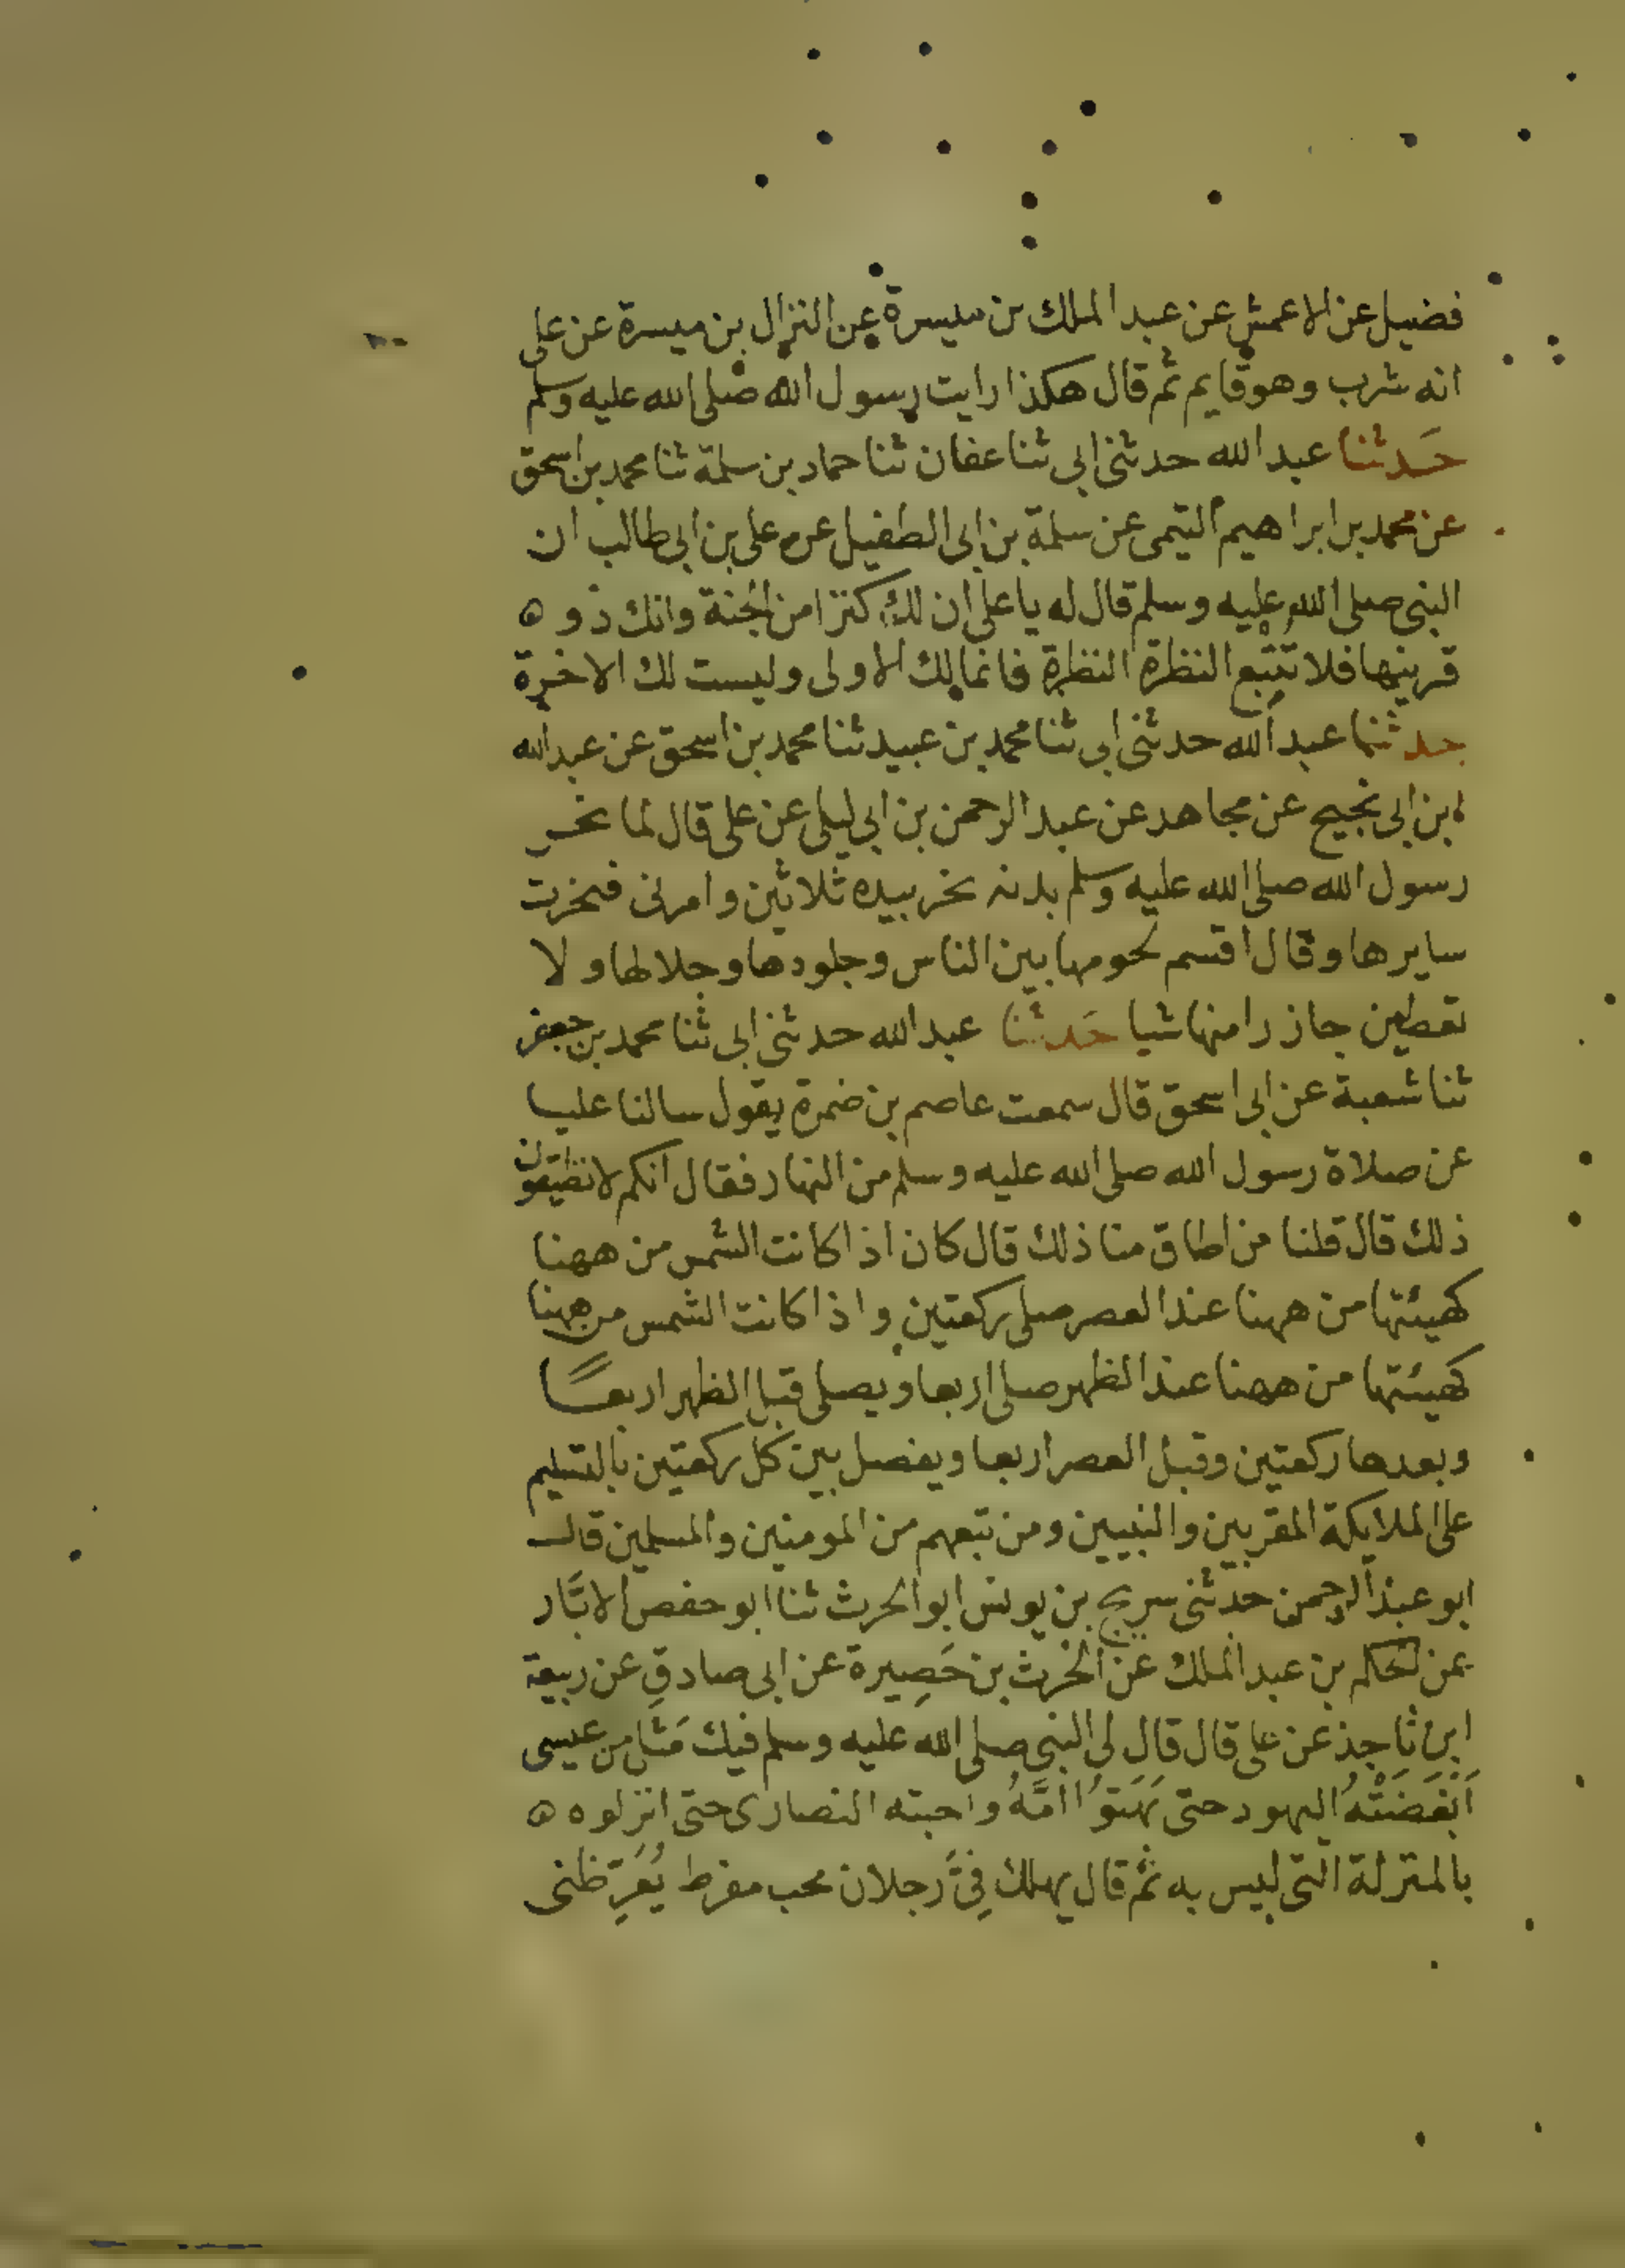 فضيل عن الاعمش عن عبد الملك بن ميسرة عن النزال بن ميسرة عن على
انه شرب وهو قايم ثم قال هكذا رايت رسول الله صلى الله عليه وسلم
حَدثنا عبد الله حدثنى ابى ثنا عفان ثنا حماد بن سلمة ثنا محمد بن اسحق
عن محمد بن ابراهيم التيمى عن سلمة بن ابى الطفيل عن على بن ابى طالب ان
النبى صلى الله عليه وسلم قال له يا على ان لك كنزا من الجنة وانك ذو ه
قرينها فلا تُتْبِع النظرة النظرة فانما لك الاولى وليست لك الاخرة
حدثنا عبد الله حدثنى ابى ثنا محمد بن عبيد ثنا محمد بن اسحق عن عبد الله
ابن ابى نجيح عن مجاهد عن عبد الرحمن بن ابى ليلى عن على قال لما نحر
رسول الله صلى الله عليه وسلم بدنه نحر بيده ثلاثين وامرنى فنحرت
سايرها وقال اقسم لحومها بين الناس وجلودها وجلالها ولا
تعطين جازرا منها شيا حَدثنا عبد الله حدثنى ابى ثنا محمد بن جعفر
ثنا شعبة عن ابى اسحق قال سمعت عاصم بن ضمرة يقول سالنا عليا
عن صلاة رسول الله صلى الله عليه وسلم من النهار فقال انكم لا تطيقون
ذلك قال قلنا من اطاق منا ذلك قال كان اذا كانت الشمس من ههنا
كهيئتها من ههنا عند العصر صلى ركعتين واذا كانت الشمس من ههنا
كهيئتها من ههنا عند الظهر صلى اربعا ويصلى قبل الظهر اربعًا
وبعدها ركعتين وقبل العصر اربعا ويفصل بين كل ركعتين بالتسليم
على الملايكة المقربين والنبيين ومن تبعهم من المومنين والمسلمين قال
ابو عبد الرحمن حدثنى سريج بن يونس ابو الحرث ثنا ابو حفص الابَّار
عن الحكم بن عبد الملك عن الحرث بن حَصِيرة عن ابى صادق عن ربيعة
ابن ناجذ عن على قال قال لى النبى صلى الله عليه وسلم فيك مَثل من عيسى
اَبْغَضَتْهُ اليهود حتى بَهَتُوا امَّهُ واحبته النصارى حتى انزلوه ه
بالمنزلة التى ليس به ثم قال يهلك فِىَّ رجلان محب مفرط يُقَرِّظنى